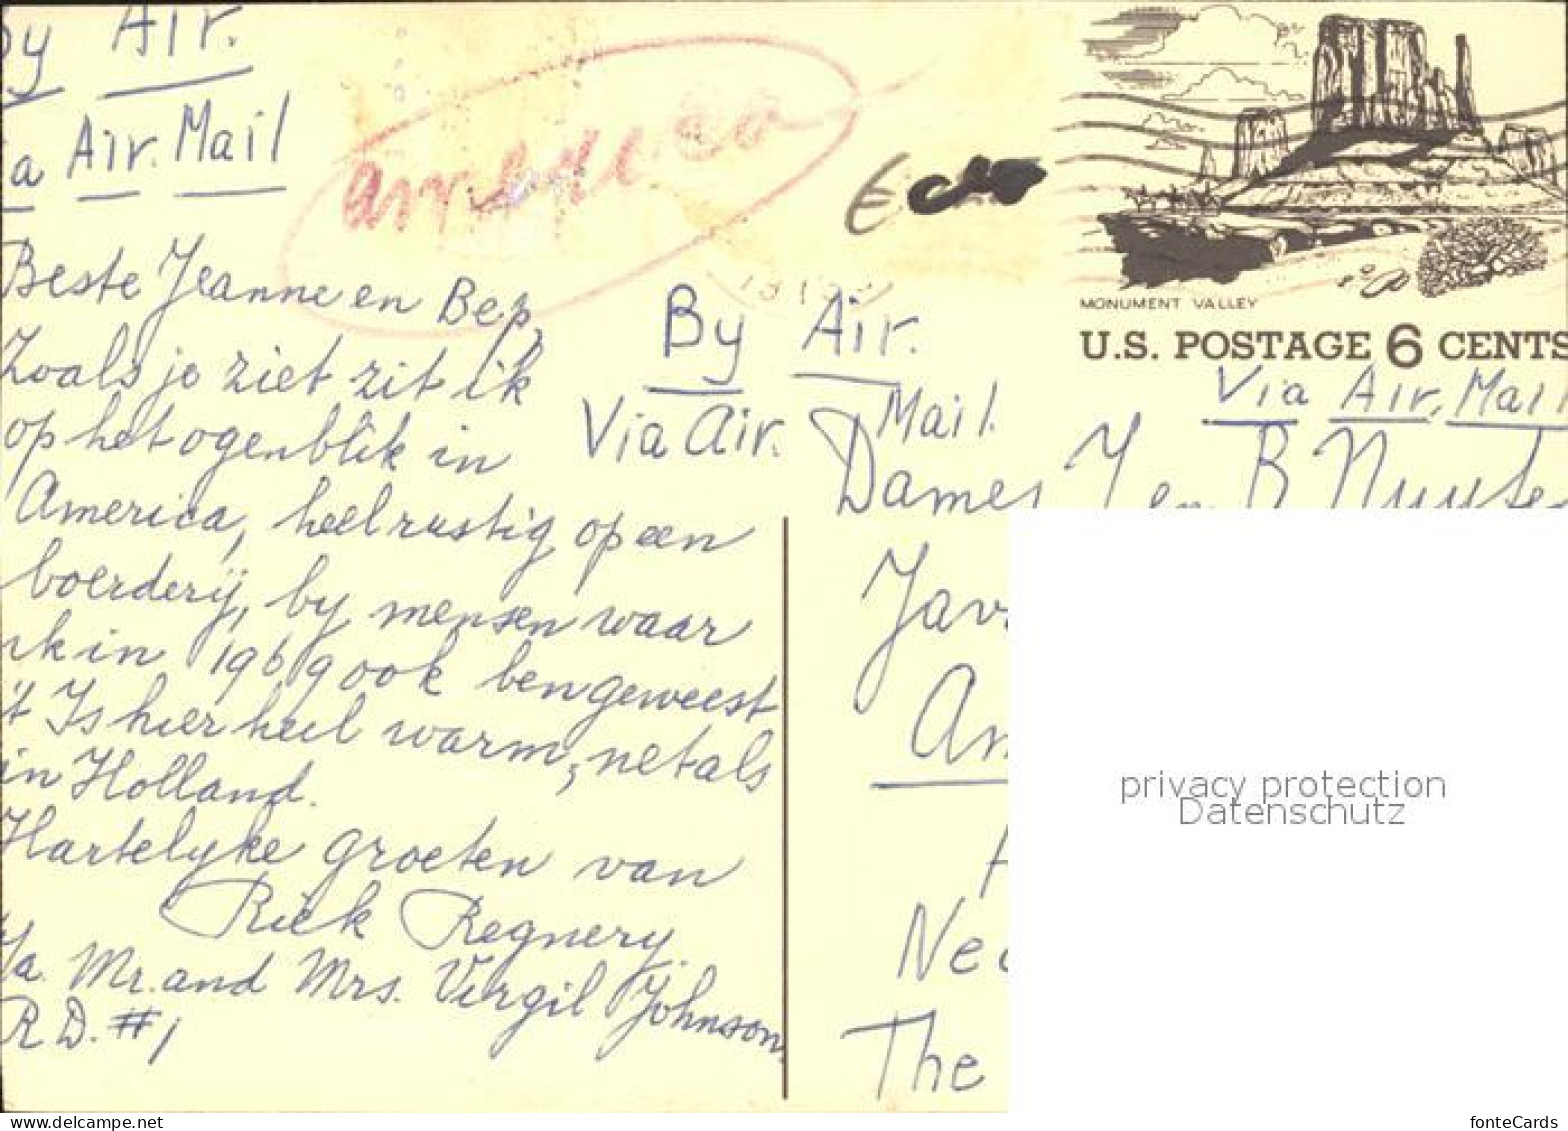 By Air.
a Air. Mail
America
MONUMENT VALLEY
U.S. POSTAGE 6 CENTS
Via Air. Mail
By Air.
Mail.
Via Air.
Beste Jeanne en Bep,
Zoals je ziet zit ik
op het ogenblik in
America, heel rustig op een
boerderij, by mensen waar
ik in 1969 ook ben geweest
't Is hier heel warm, net als
in Holland.
Hartelyke groeten van
Riek Regnery.
Mr. and Mrs. Virgil Johnson.
R D. #1
Dames J en B Nuyte
Jav
Am
Ned
The
privacy protection
Datenschutz
www.delcampe.net
fonteCards